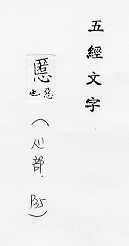 五經文字
慝
惡也
(心部.P35)